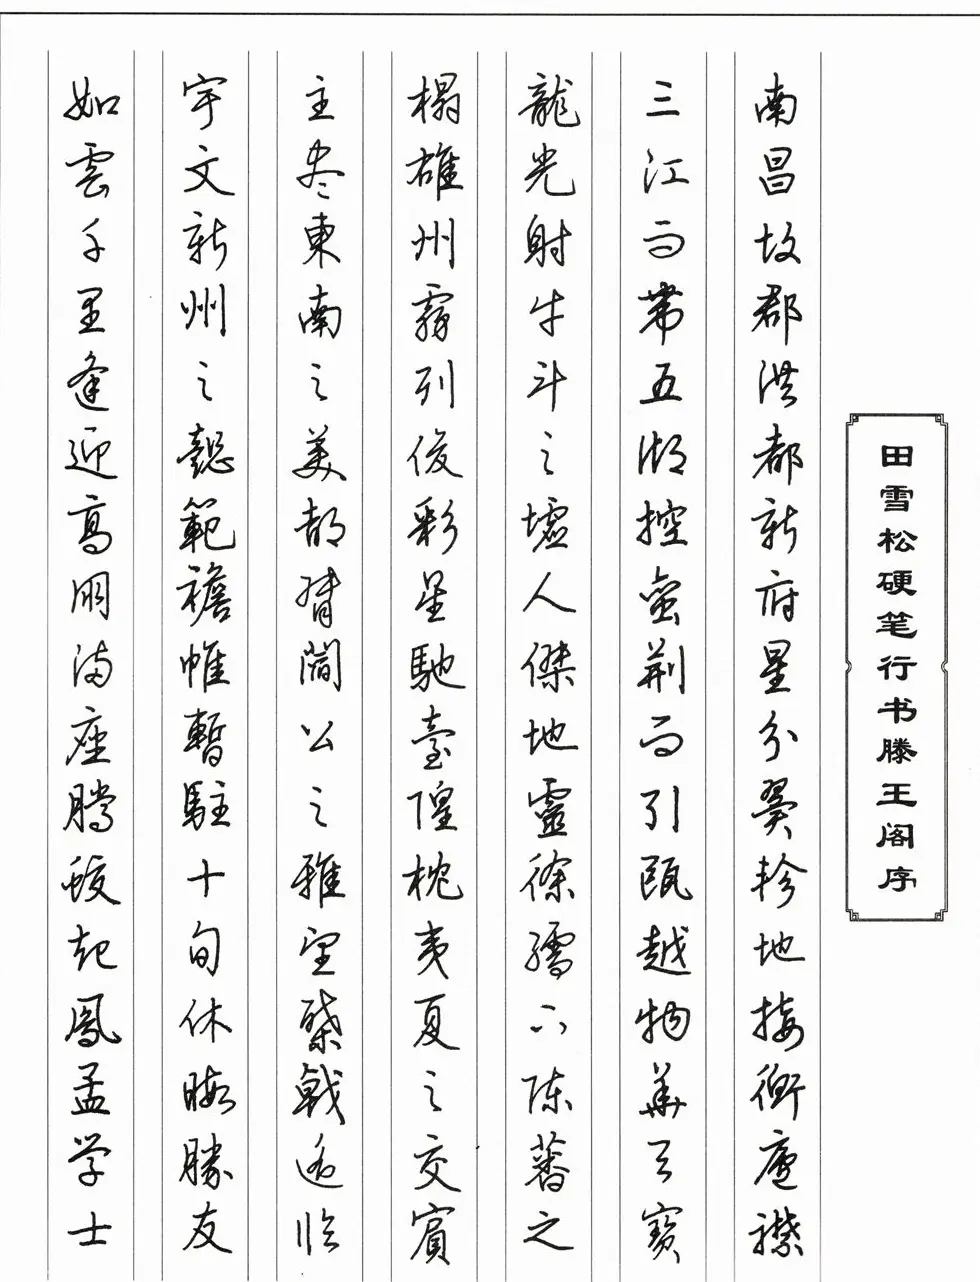 田雪松硬笔行书滕王阁序
南昌故郡洪都新府星分翼軫地接衡廬襟
三江而帶五湖控蠻荊而引甌越物華天寶
龍光射牛斗之墟人傑地靈徐孺下陳蕃之
榻雄州霧列俊彩星馳臺隍枕夷夏之交賓
主尽東南之美都督閻公之雅望棨戟遙臨
宇文新州之懿範襜帷暫駐十旬休暇勝友
如雲千里逢迎高朋滿座騰蛟起鳳孟学士